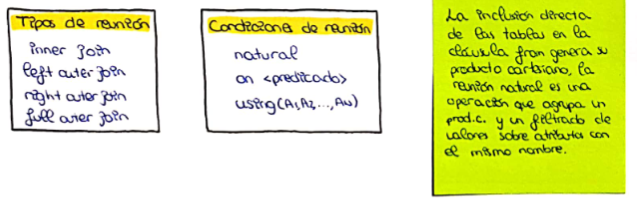 Tipos de reunión
inner join
left outer join
right outer join
full outer join
Condiciones de reunión
natural
on <predicado>
using(A₁,A₂,...,AN)
La inclusión directa
de las tablas en la
cláusula from genera su
producto cartesiano, la
reunión natural es una
operación que agrupa un
prod.c. y un filtrado de
valores sobre atributos con
el mismo nombre.